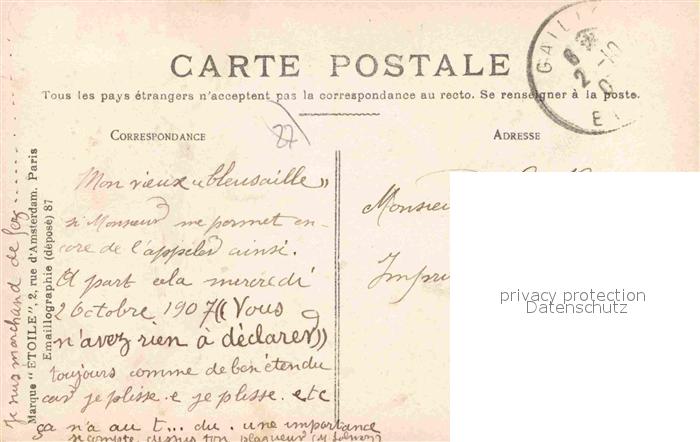 GAILL
CARTE POSTALE
Tous les pays étrangers n'acceptent pas la correspondance au recto. Se renseigner à la poste.
CORRESPONDANCE
ADRESSE
87
Mon vieux «bleusaille»
si Monsieur me permet en-
core de l'appeler ainsi.
A part cela mercredi
2 Octobre 1907 ((Vous
n'avez rien à déclarer))
toujours comme de bien étendu
car je plisse. e je plisse. etc
ça n'a au t... du. une importance
si compte
Monsieu
Impri
privacy protection
Datenschutz
Je suis marchand de
Marque "ÉTOILE", 2, rue d'Amsterdam. Paris
Emaillographie (déposé) 87